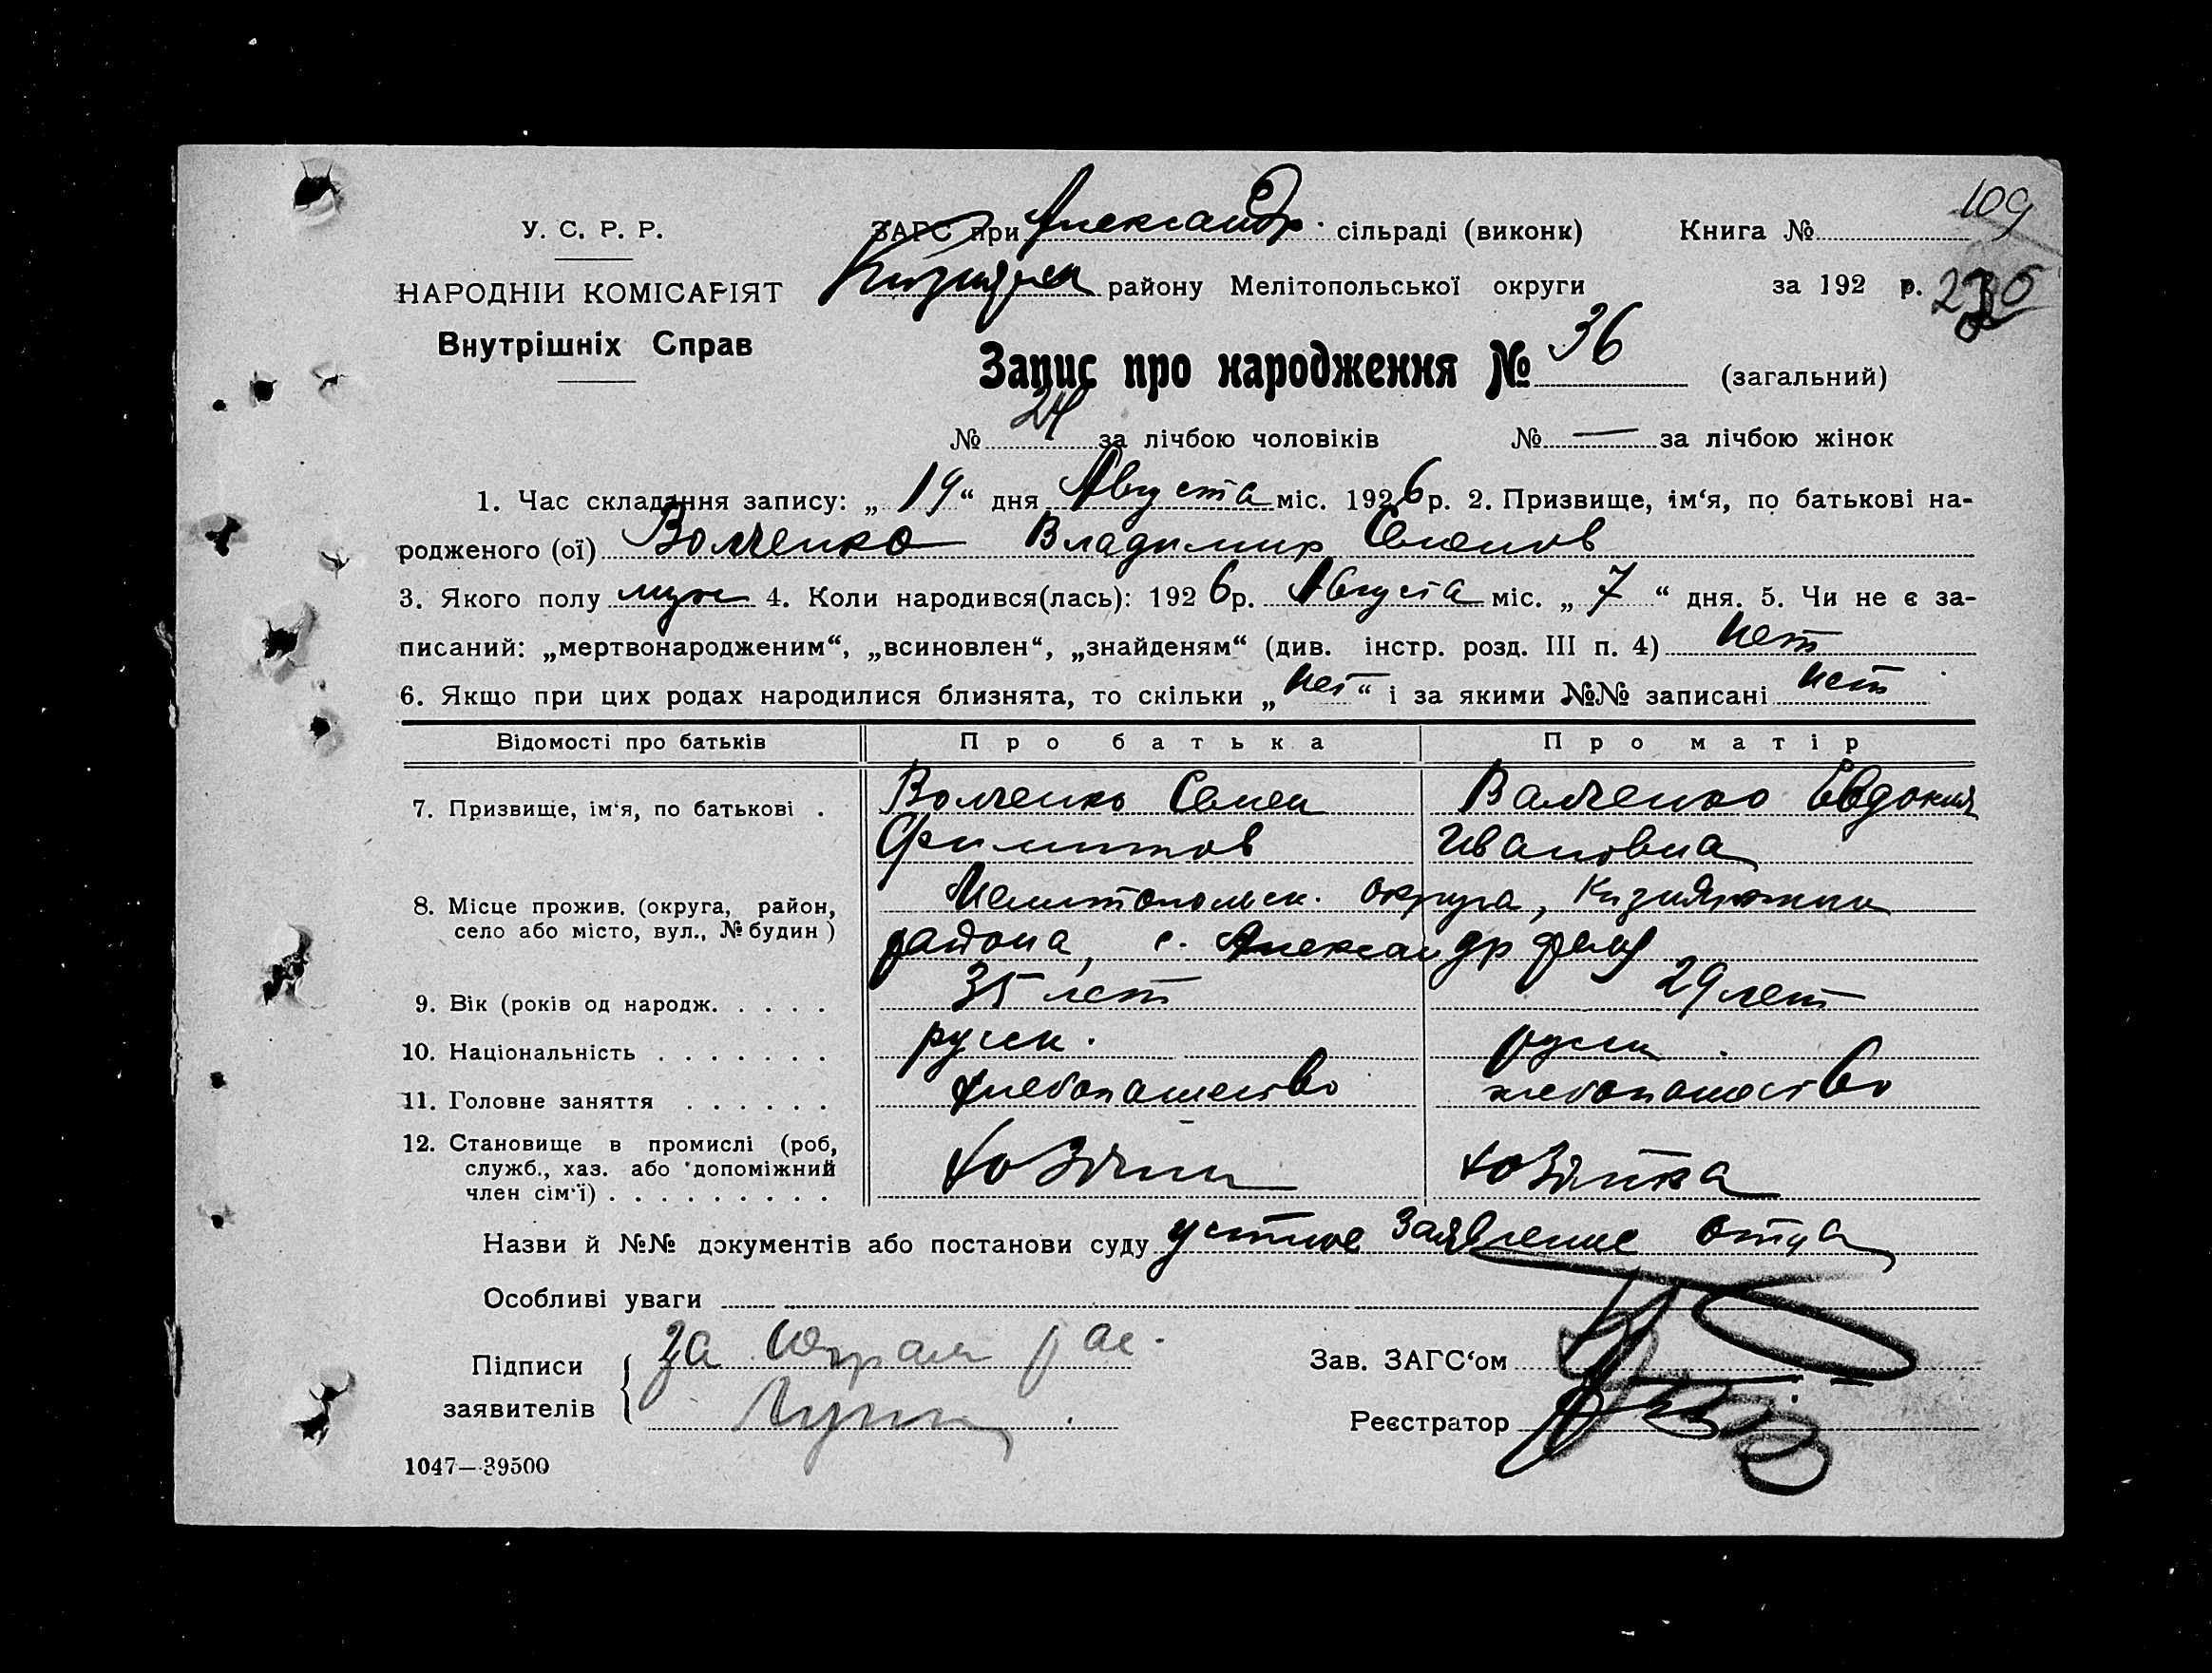 109
У. С. Р. Р.
ЗАГС при Александр. сільраді (виконк) Книга №
НАРОДНІЙ КОМІСАРІЯТ
району Мелітопольської округи за 192 р. 230
Внутрішніх Справ
Запис про народження № 36 (загальний)
№ 24 за лічбою чоловіків № — за лічбою жінок
1. Час складання запису: „19“ дня Августа міс. 1926 р. 2. Призвище, ім‘я, по батькові на-
родженого (ої) Волченко Владимир Семенов
3. Якого полу муж 4. Коли народився(лась): 1926 р. Августа міс. „7“ дня. 5. Чи не є за-
писаний: „мертвонародженим“, „всиновлен“, „знайденям“ (див. інстр. розд. III п. 4) нет
6. Якщо при цих родах народилися близнята, то скільки „нет“ і за якими №№ записані нет
Відомості про батьків Про батька Про матір
7. Призвище, ім‘я, по батькові . Волченко Семен Волченко Евдокия
Филиппов Ивановна
8. Місце прожив. (округа, район, Мелитопольск. округа,
село або місто, вул., № будин) района, с. Александр
9. Вік (років од народж. . . . . 35 лет 29 лет
10. Національність . . . . . . . русск. русск.
11. Головне заняття . . . . . . хлебопашество хлебопашество
12. Становище в промислі (роб,
служб., хаз. або допоміжний хозяин хозяйка
член сім‘ї) . . . . . . . . . .
Назви й №№ документів або постанови суду устное заявление отца
Особливі уваги
за
Підписи Зав. ЗАГС‘ом
заявителів Реєстратор
1047—39500